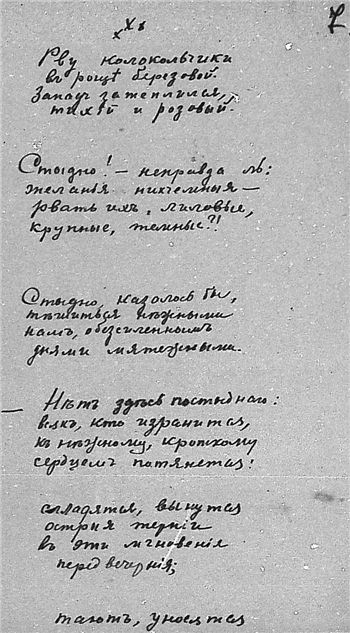 7
х х х
Рву колокольчики
въ рощѣ березовой.
Западъ затеплился,
тихій и розовый.
Стыдно! – неправда ль:
желанья никчемныя –
рвать ихъ, лиловые,
крупные, темные?!
Стыдно, казалось бы,
тѣшиться нѣжными
намъ, обезсиленнымъ
днями мятежными.
– Нѣтъ здѣсь постыднаго:
всякъ, кто изранится,
къ нѣжному, кроткому
сердцемъ потянется:
сгладятся, вынутся
острия терній
въ эти мгновенія
передвечернія;
таютъ, уносятся